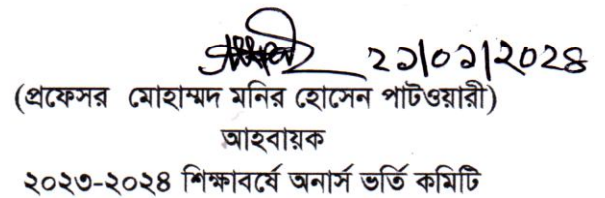 ২১|০১|২০২৪
(প্রফেসর মোহাম্মদ মনির হোসেন পাটওয়ারী)
আহবায়ক
২০২৩-২০২৪ শিক্ষাবর্ষে অনার্স ভর্তি কমিটি